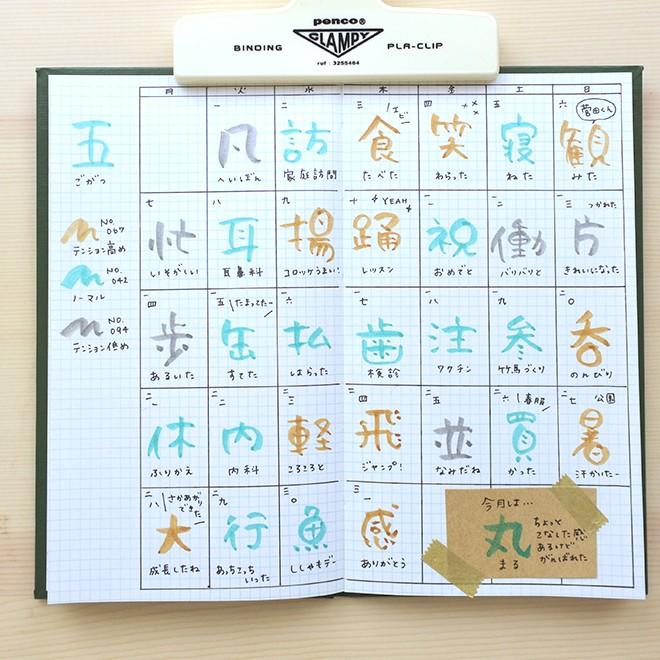 penco®
BINDING
CLAMPY
PLA-CLIP
ref : 3255464
五
ごがつ
NO.
067
テンション高め
NO.
042
ノーマル
NO.
094
テンション低め
月
火
水
木
金
土
日
一
凡
へいぼん
二
訪
家庭訪問
三
エビ
食
たべた
四
笑
わらった
五
寝
ねた
六
菅田くん
観
みた
七
忙
いそがしい
八
耳
耳鼻科
九
揚
コロッケうまい!
十
YEAH
踊
レッスン
一一
祝
おめでと
一二
働
バリバリと
一三
つかれた
片
きれいになった
一四
歩
あるいた
一五
たまってたー
缶
すてた
一六
払
はらった
一七
歯
検診
一八
注
ワクチン
一九
参
竹馬づくり
二〇
呑
のんびり
二一
休
ふりかえ
二二
内
内科
二三
軽
ころころと
二四
飛
ジャンプ!
二五
並
なみだね
二六
春服
買
かった
二七
公園
暑
汗かいたー
二八
さかあがり
できた
大
成長したね
二九
行
あっちこっち
いった
三〇
魚
ししゃもデー
三一
感
ありがとう
今月は…
丸
まる
ちょっと
こなした感
あるけど
がんばれた